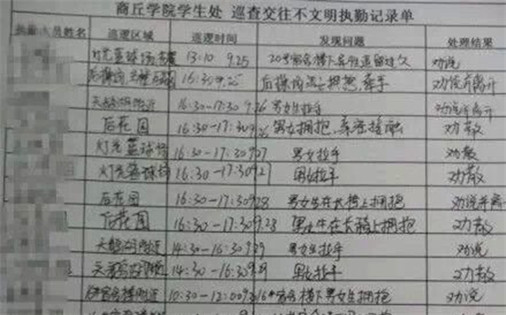 商丘学院学生处 巡查交往不文明执勤记录单
人员姓名 巡理区域 巡理时间 发现问题 处理结果
灯光篮球场 13:10 9.25 20#宿舍楼下 劝说
后操场 16:30 9.25 后操场 拥抱,牵手 劝说后离开
天鹅湖附近 16:30-17:30 9.26 男女生拉手 劝说
后花园 16:30-17:30 9.26 男女拥抱,亲密接触 劝散
灯光篮球场 16:30-17:30 9.27 男女拉手 劝散
灯光篮球场 16:30-17:30 9.27 男女拉手 劝散
后花园 16:30-17:30 9.28 男女生在长椅上拥抱 劝说
后花园 16:30-17:30 9.28 男女生在长椅上拥抱 劝散
天鹅湖附近 14:30-16:30 9.29 男女生拉手 劝说
天鹅湖附近 14:30-16:30 男女拉手 劝散
10:30-12:00 16#宿舍楼下男女生拥抱 劝散